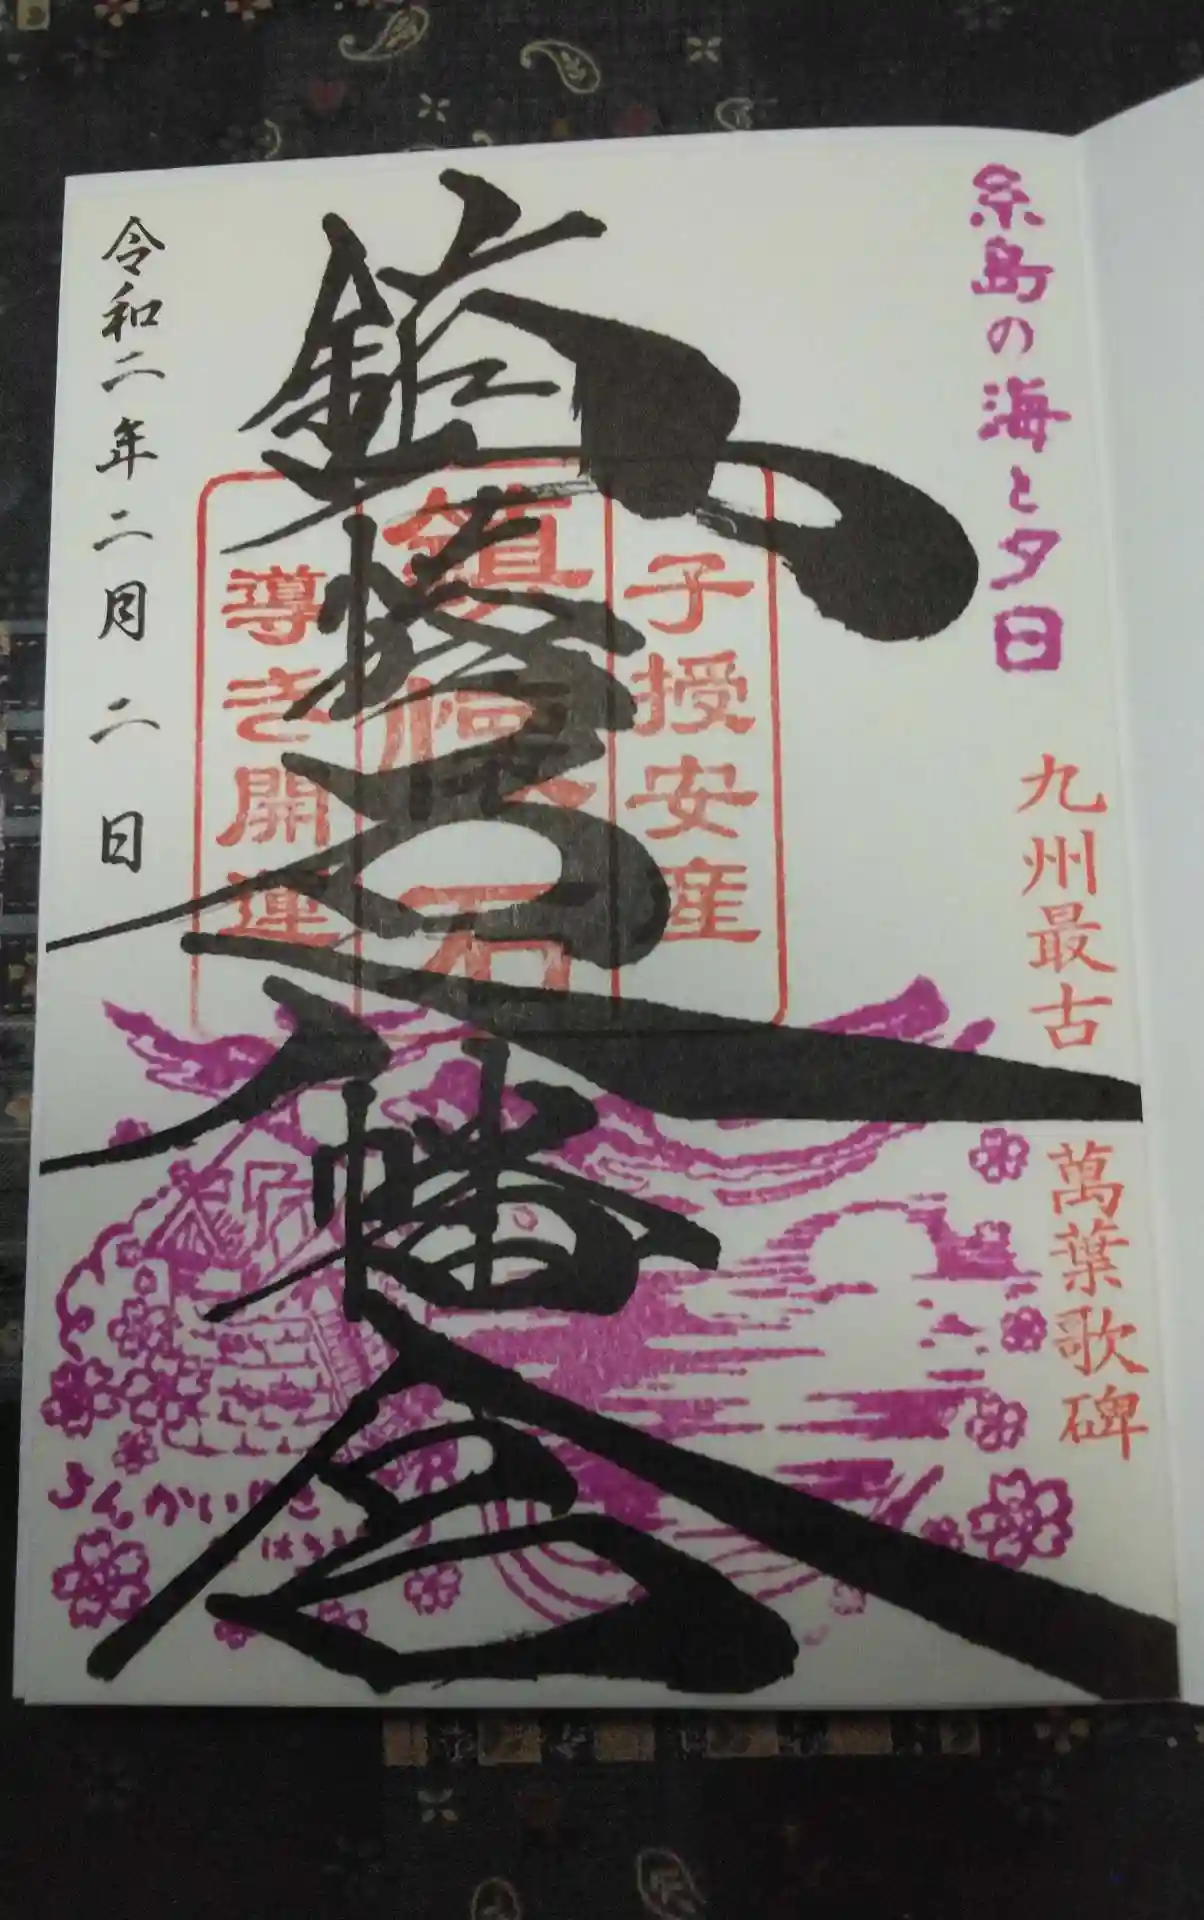 糸島の海と夕日
九州最古
萬葉歌碑
子授安産
鎮懐石
導き開運
鎮懐石八幡宮
令和二年二月二日
ちんかいせき
はちまん